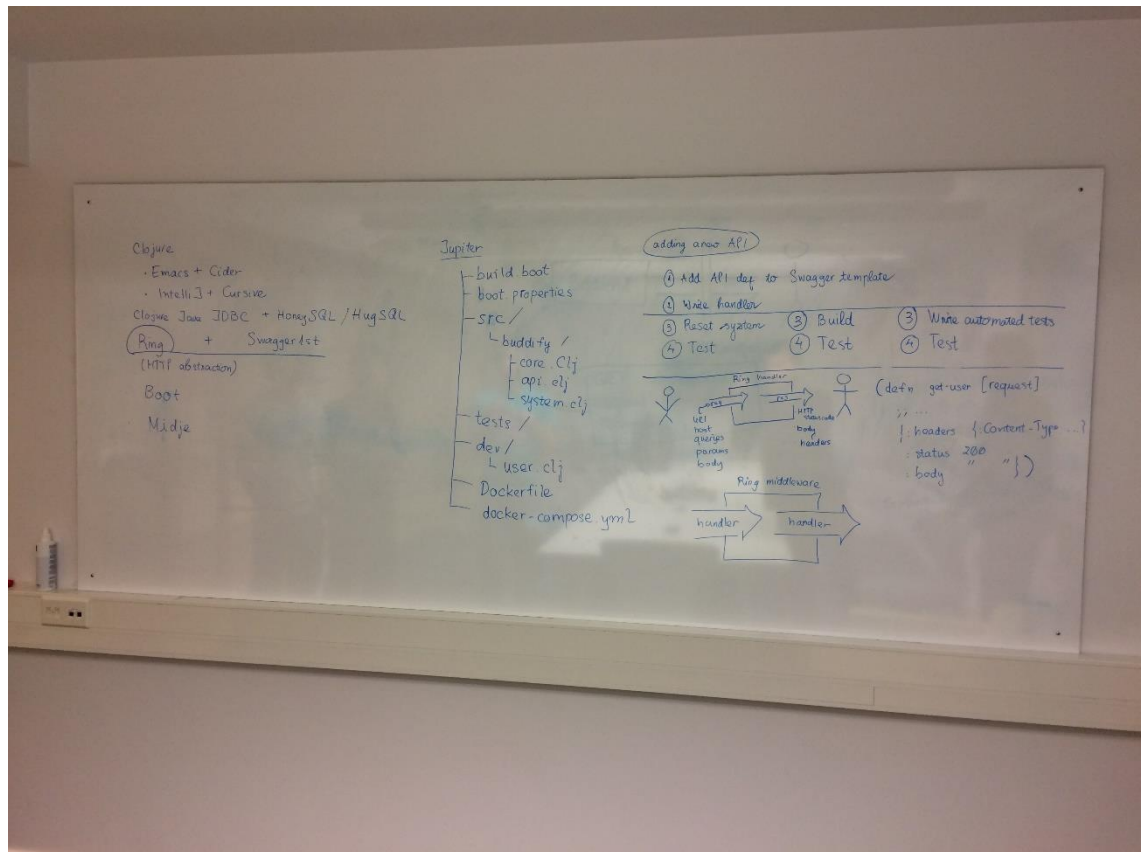 Clojure
· Emacs + Cider
· IntelliJ + Cursive
Clojure Java JDBC + HoneySQL / HugSQL
Ring + Swagger1st
(HTTP abstraction)
Boot
Midje
Jupiter
build boot
boot.properties
src/
buddify/
core.clj
api.clj
system.clj
tests/
dev/
user.clj
Dockerfile
docker-compose.yml
adding a new API
① Add API def to Swagger template
② Write handler
③ Reset system ③ Build ③ Write automated tests
④ Test ④ Test ④ Test
Ring handler
URI
host
queries
params
body
HTTP
body
headers
(defn get-user [request]
;; ...
{:headers {:Content-Type ...}
:status 200
:body " " })
Ring middleware
handler handler